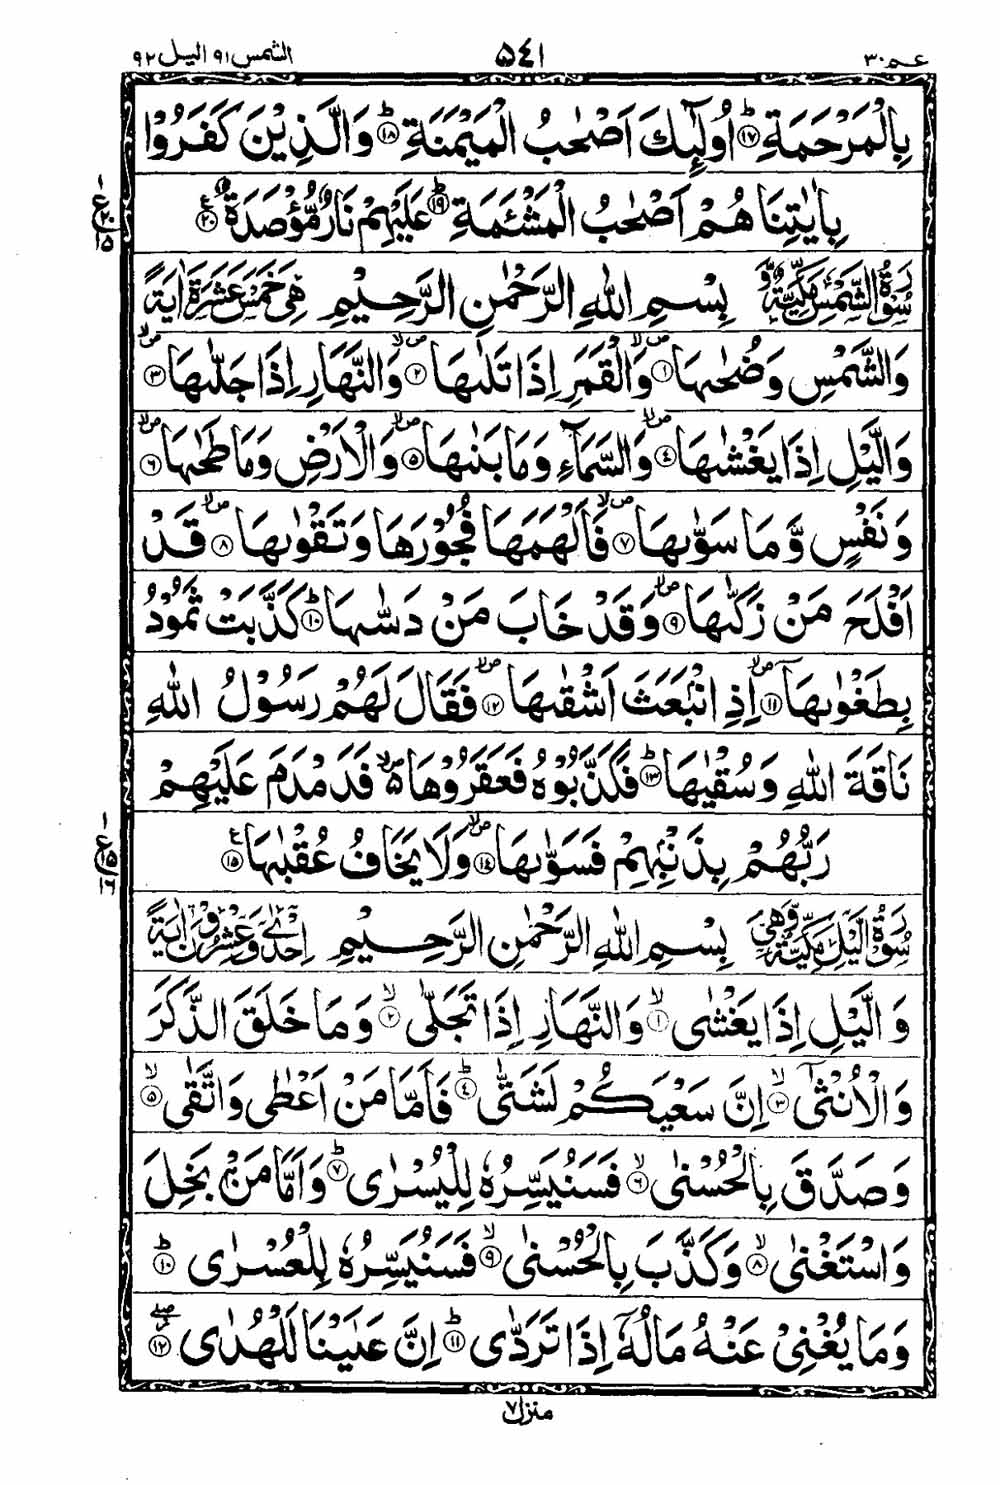 عم ٣٠ ٥٤١ الشمس ٩١ اليل ٩٢
بِالْمَرْحَمَةِ ؕ﴿۱۷﴾ اُولٰٓئِكَ اَصْحٰبُ الْمَيْمَنَةِ ؕ﴿۱۸﴾ وَالَّذِيْنَ كَفَرُوْا
بِاٰيٰتِنَا هُمْ اَصْحٰبُ الْمَشْـَٔمَةِ ؕ﴿۱۹﴾ عَلَيْهِمْ نَارٌ مُّؤْصَدَةٌ ﴿۲۰﴾
سُوْرَةُ الشَّمْسِ مَكِّيَّةٌ وَّ بِسْمِ اللّٰهِ الرَّحْمٰنِ الرَّحِيْمِ هِىَ خَمْسَ عَشَرَةَ اٰيَةً
وَالشَّمْسِ وَضُحٰىهَا ۪ۙ﴿۱﴾ وَالْقَمَرِ اِذَا تَلٰىهَا ۪ۙ﴿۲﴾ وَالنَّهَارِ اِذَا جَلّٰىهَا ۪ۙ﴿۳﴾
وَالَّيْلِ اِذَا يَغْشٰىهَا ۪ۙ﴿۴﴾ وَالسَّمَآءِ وَمَا بَنٰىهَا ۪ۙ﴿۵﴾ وَالْاَرْضِ وَمَا طَحٰىهَا ۪ۙ﴿۶﴾
وَنَفْسٍ وَّمَا سَوّٰىهَا ۪ۙ﴿۷﴾ فَاَلْهَمَهَا فُجُوْرَهَا وَتَقْوٰىهَا ۪ۙ﴿۸﴾ قَدْ
اَفْلَحَ مَنْ زَكّٰىهَا ۪ۙ﴿۹﴾ وَقَدْ خَابَ مَنْ دَسّٰىهَا ؕ﴿۱۰﴾ كَذَّبَتْ ثَمُوْدُ
بِطَغْوٰىهَاۤ ۪ۙ﴿۱۱﴾ اِذِ انْۢبَعَثَ اَشْقٰىهَا ۪ۙ﴿۱۲﴾ فَقَالَ لَهُمْ رَسُوْلُ اللّٰهِ
نَاقَةَ اللّٰهِ وَسُقْيٰهَا ؕ﴿۱۳﴾ فَكَذَّبُوْهُ فَعَقَرُوْهَا ۵ ۪ۙ فَدَمْدَمَ عَلَيْهِمْ
رَبُّهُمْ بِذَنْۢبِهِمْ فَسَوّٰىهَا ۪ۙ﴿۱۴﴾ وَلَا يَخَافُ عُقْبٰهَا ﴿۱۵﴾
سُوْرَةُ الَّيْلِ مَكِّيَّةٌ وَّهِىَ بِسْمِ اللّٰهِ الرَّحْمٰنِ الرَّحِيْمِ اِحْدٰى وَّعِشْرُوْنَ اٰيَةً
وَالَّيْلِ اِذَا يَغْشٰى ۙ﴿۱﴾ وَالنَّهَارِ اِذَا تَجَلّٰى ۙ﴿۲﴾ وَمَا خَلَقَ الذَّكَرَ
وَالْاُنْثٰۤى ۙ﴿۳﴾ اِنَّ سَعْيَكُمْ لَشَتّٰى ؕ﴿۴﴾ فَاَمَّا مَنْ اَعْطٰى وَاتَّقٰى ۙ﴿۵﴾
وَصَدَّقَ بِالْحُسْنٰى ۙ﴿۶﴾ فَسَنُيَسِّرُهٗ لِلْيُسْرٰى ؕ﴿۷﴾ وَاَمَّا مَنْۢ بَخِلَ
وَاسْتَغْنٰى ۙ﴿۸﴾ وَكَذَّبَ بِالْحُسْنٰى ۙ﴿۹﴾ فَسَنُيَسِّرُهٗ لِلْعُسْرٰى ؕ﴿۱۰﴾
وَمَا يُغْنِىْ عَنْهُ مَالُهٗۤ اِذَا تَرَدّٰى ؕ﴿۱۱﴾ اِنَّ عَلَيْنَا لَلْهُدٰى ۖ﴿۱۲﴾
منزل ٧